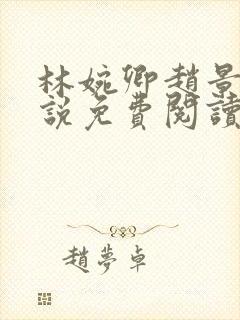 林婉卿趙景
說免費閱讀
趙夢卓